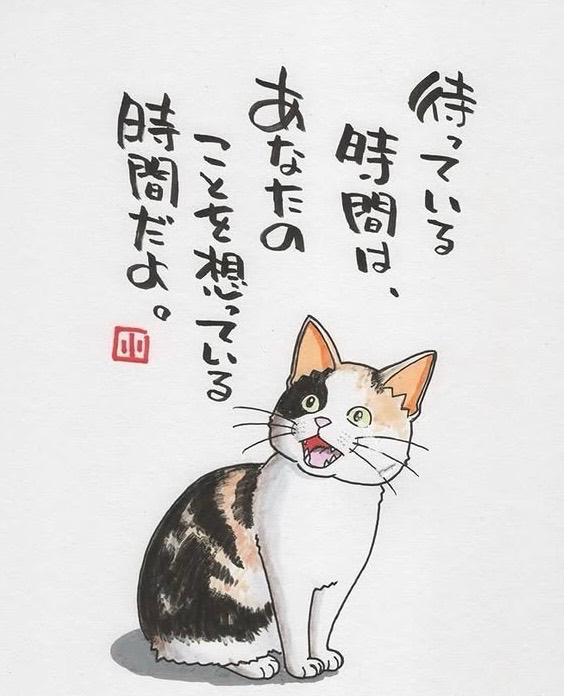 待っている
時間は、
あなたの
ことを想っている
時間だよ。